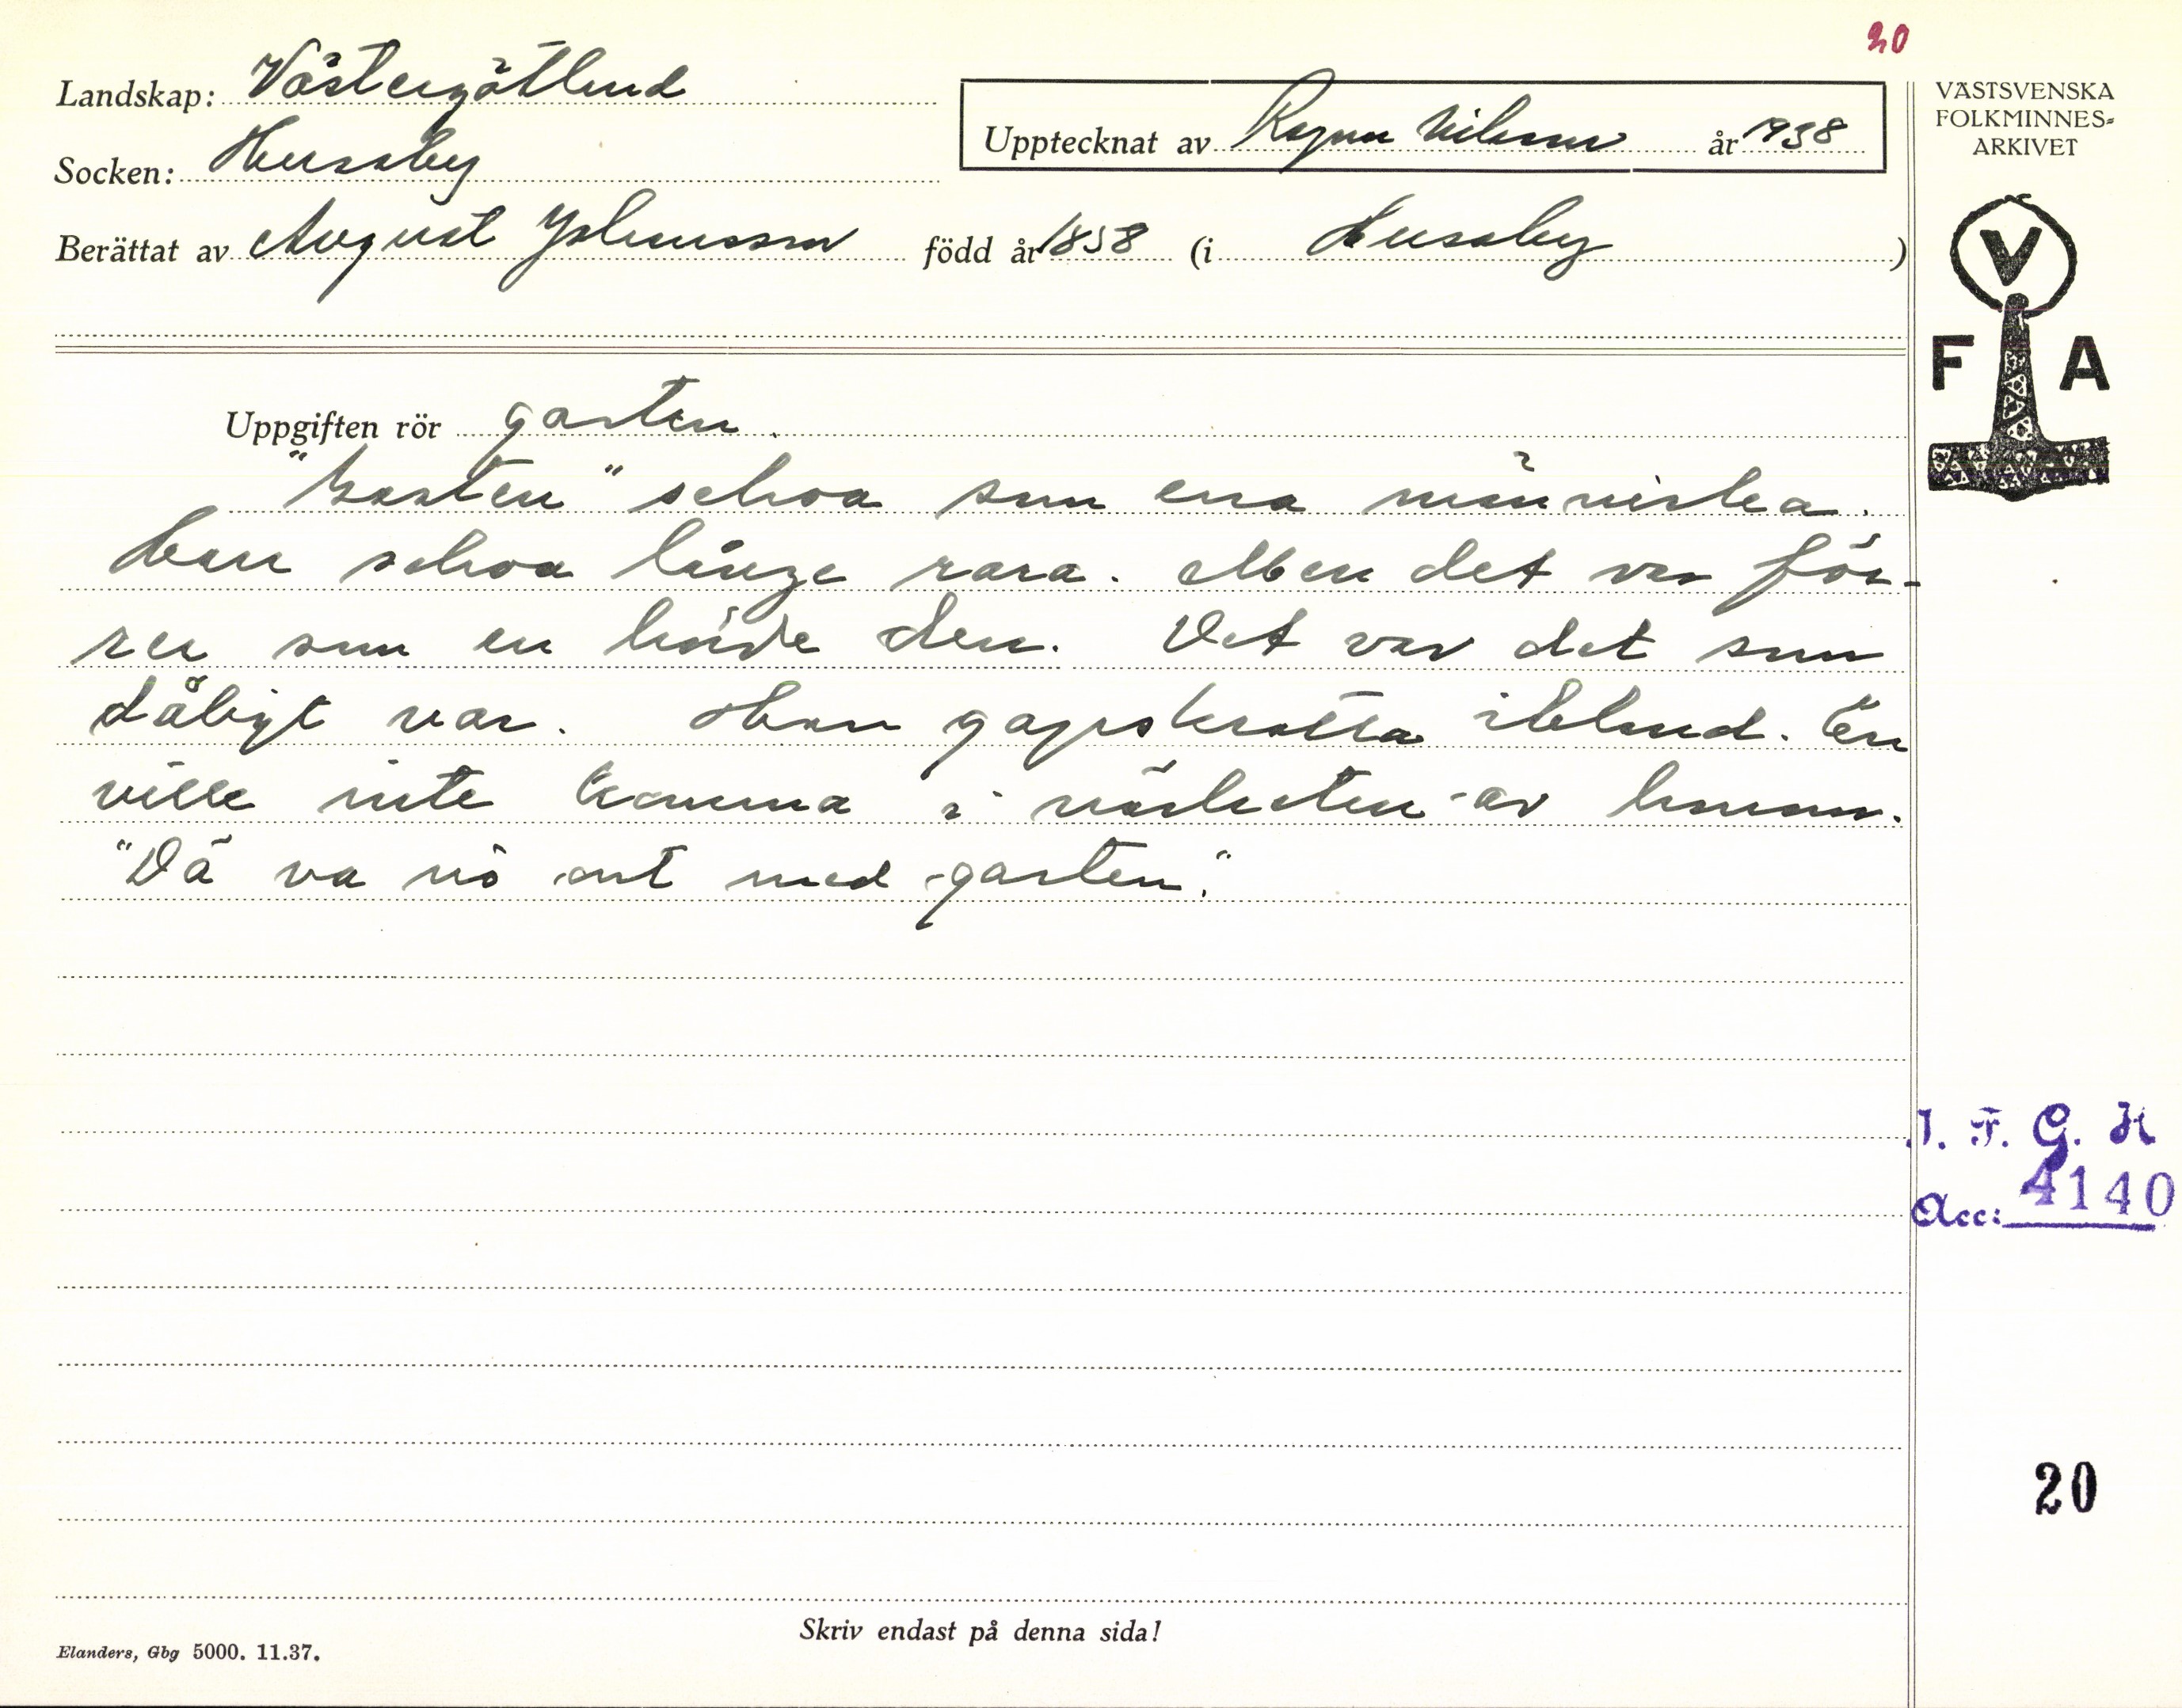 20
Landskap: Västergötland
Socken: Husaby
Upptecknat av Ragnar Nilsson år 1938
Berättat av August Johansson född år 1858 (i Husaby)
VÄSTSVENSKA
FOLKMINNES-
ARKIVET
V
F A
Uppgiften rör gasten.
"Gasten" skrea som ena människa.
Han skrea länge rara. Men det var för-
ren som en hörde den. Det var det som
dåligt var. Han gapskratta ibland. En
ville inte komma i närheten av honom.
"Dä va nô ont med gasten."
I. F. G. H
Acc: 4140
20
Skriv endast på denna sida!
Elanders, Gbg 5000. 11.37.